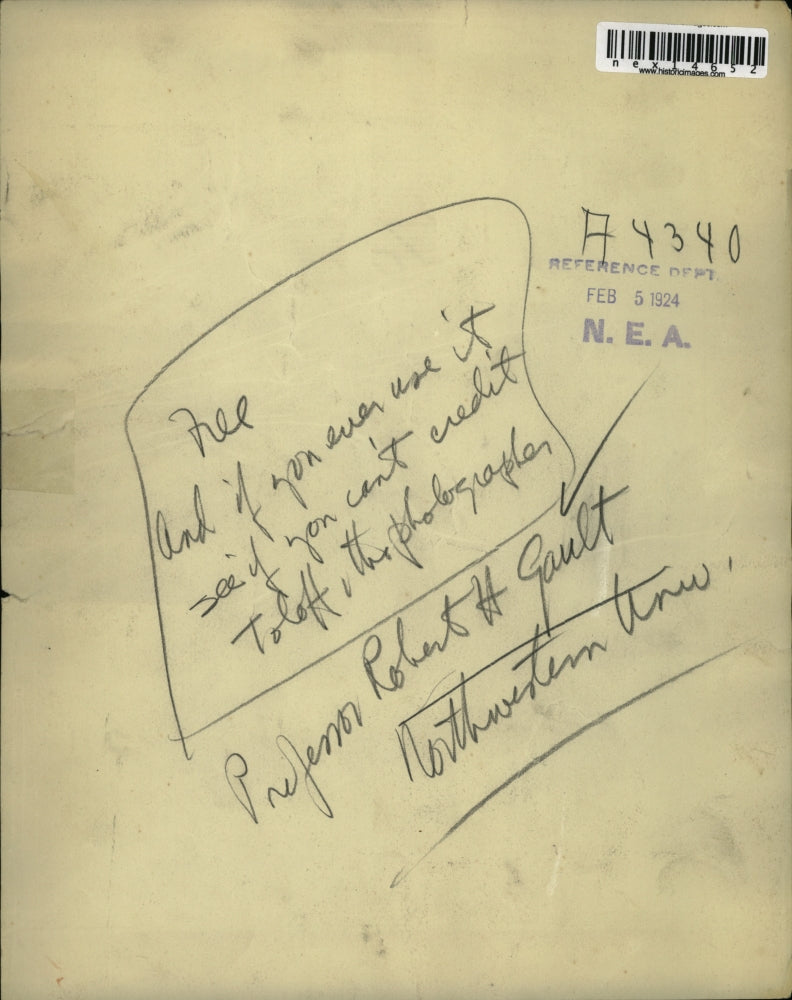 nex14652
www.historicimages.com
A 4340
REFERENCE DEPT.
FEB 5 1924
N. E. A.
Free
And if you ever use it
see if you can't credit
Toloff, the photographer
Professor Robert H Gault
Northwestern Univ.